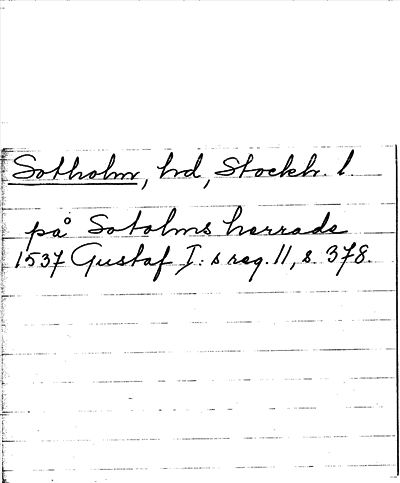 Sotholm, hd, Stockh. l.
på Sotolms herrade
1537 Gustaf I:s reg. 11, s. 378.